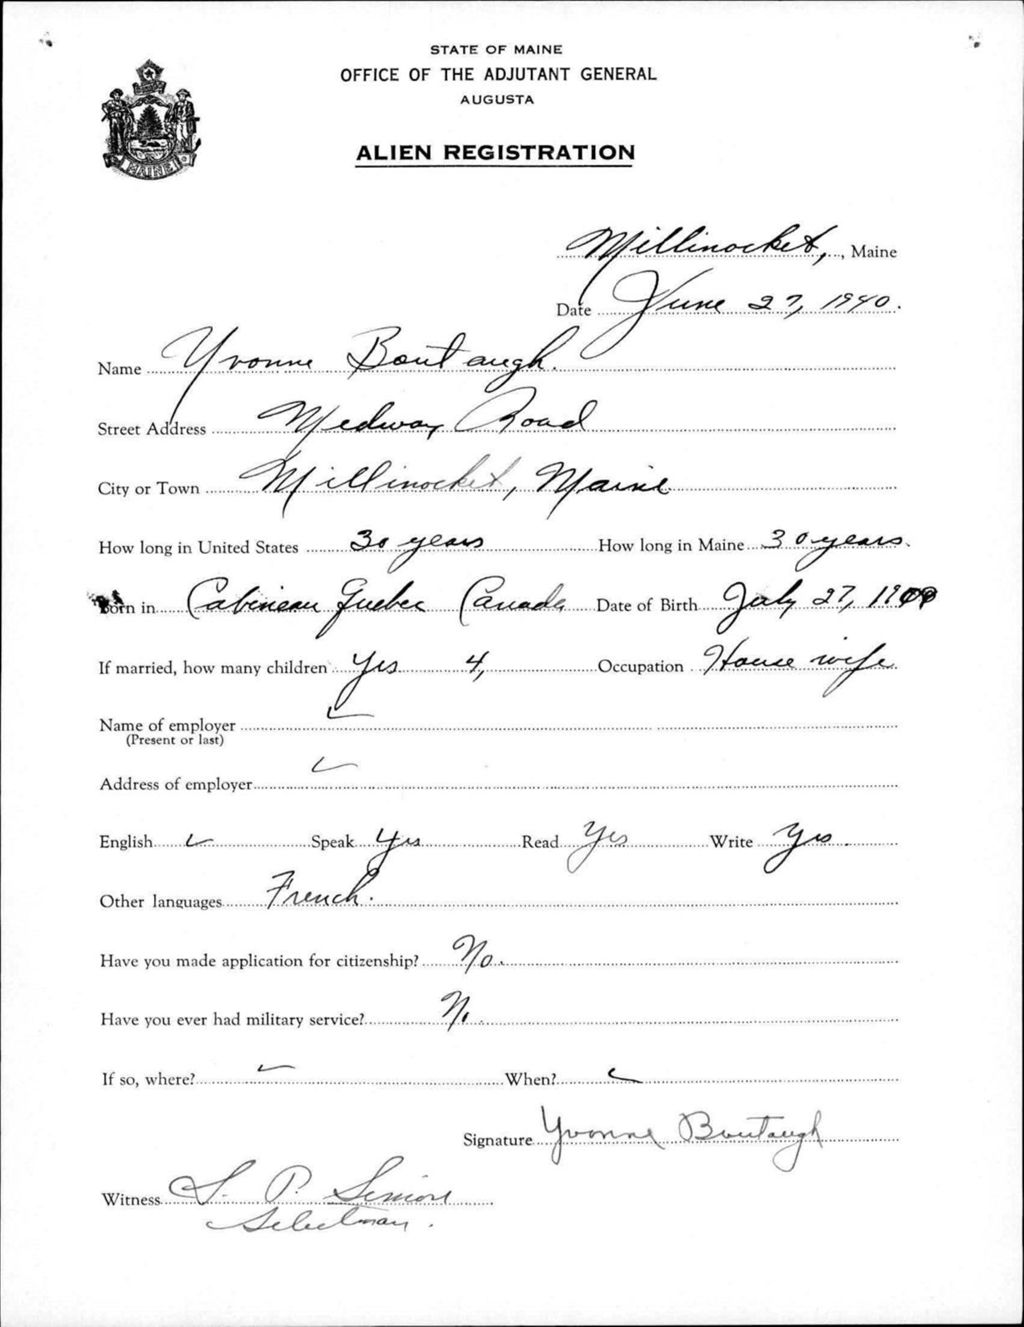 STATE OF MAINE
OFFICE OF THE ADJUTANT GENERAL
AUGUSTA
ALIEN REGISTRATION
MAINE
Millinocket, , Maine
Date June 27, 1940.
Name Yvonne Boutaugh.
Street Address Medway Road
City or Town Millinocket, Maine
How long in United States 30 years How long in Maine 30 years.
Born in Cabineau Quebec Canada Date of Birth July 27,
If married, how many children Yes 4, Occupation House wife
Name of employer
(Present or last)
Address of employer
English Speak Yes Read Yes Write Yes.
Other languages French.
Have you made application for citizenship? No.
Have you ever had military service? No.
If so, where? When?
Signature Yvonne Boutaugh
Witness S. P. Simon
Selectman.